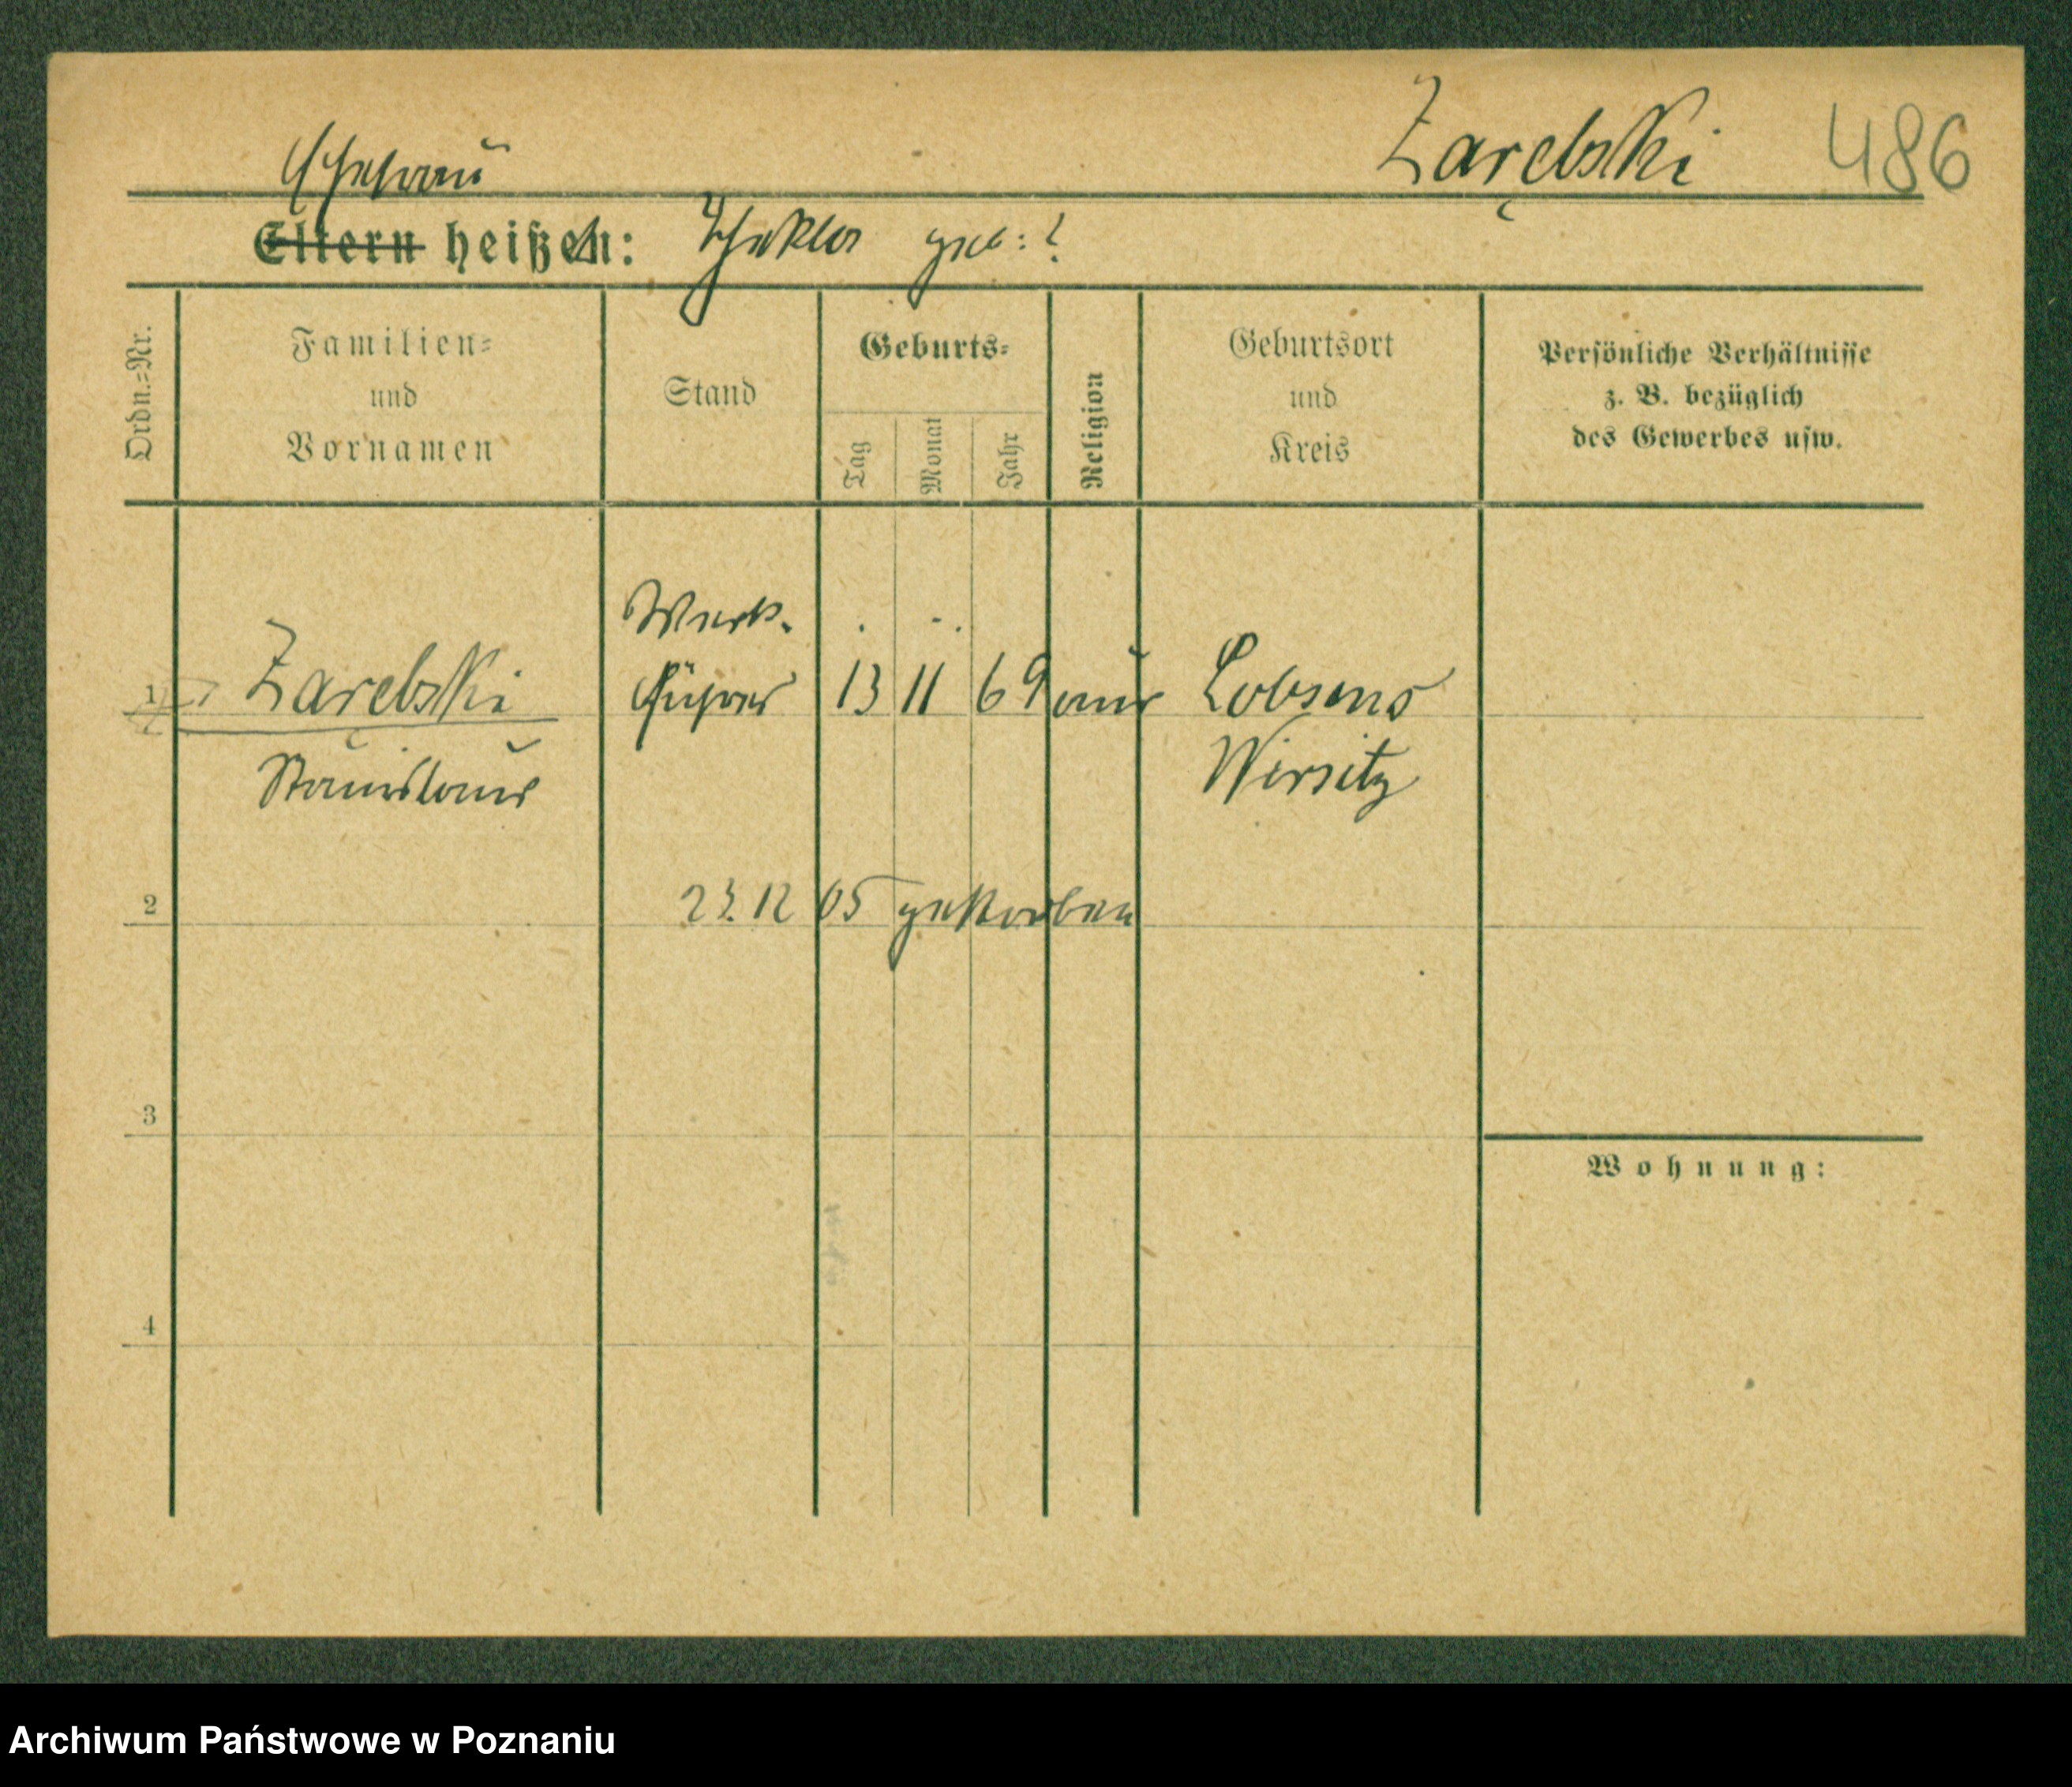 Zarębski 486
Ehefrau
Eltern heißen: Thekla geb: ?
Ordn.=Nr.
Familien=
und
Vornamen
Stand
Geburts=
Tag
Monat
Jahr
Religion
Geburtsort
und
Kreis
Persönliche Verhältnisse
z. B. bezüglich
des Gewerbes usw.
Werk-
1 Zarębski führer 13 11 69 Lobsens
Stanislaus Wirsitz
2 23.12 05 gestorben
3
Wohnung:
4
Archiwum Państwowe w Poznaniu